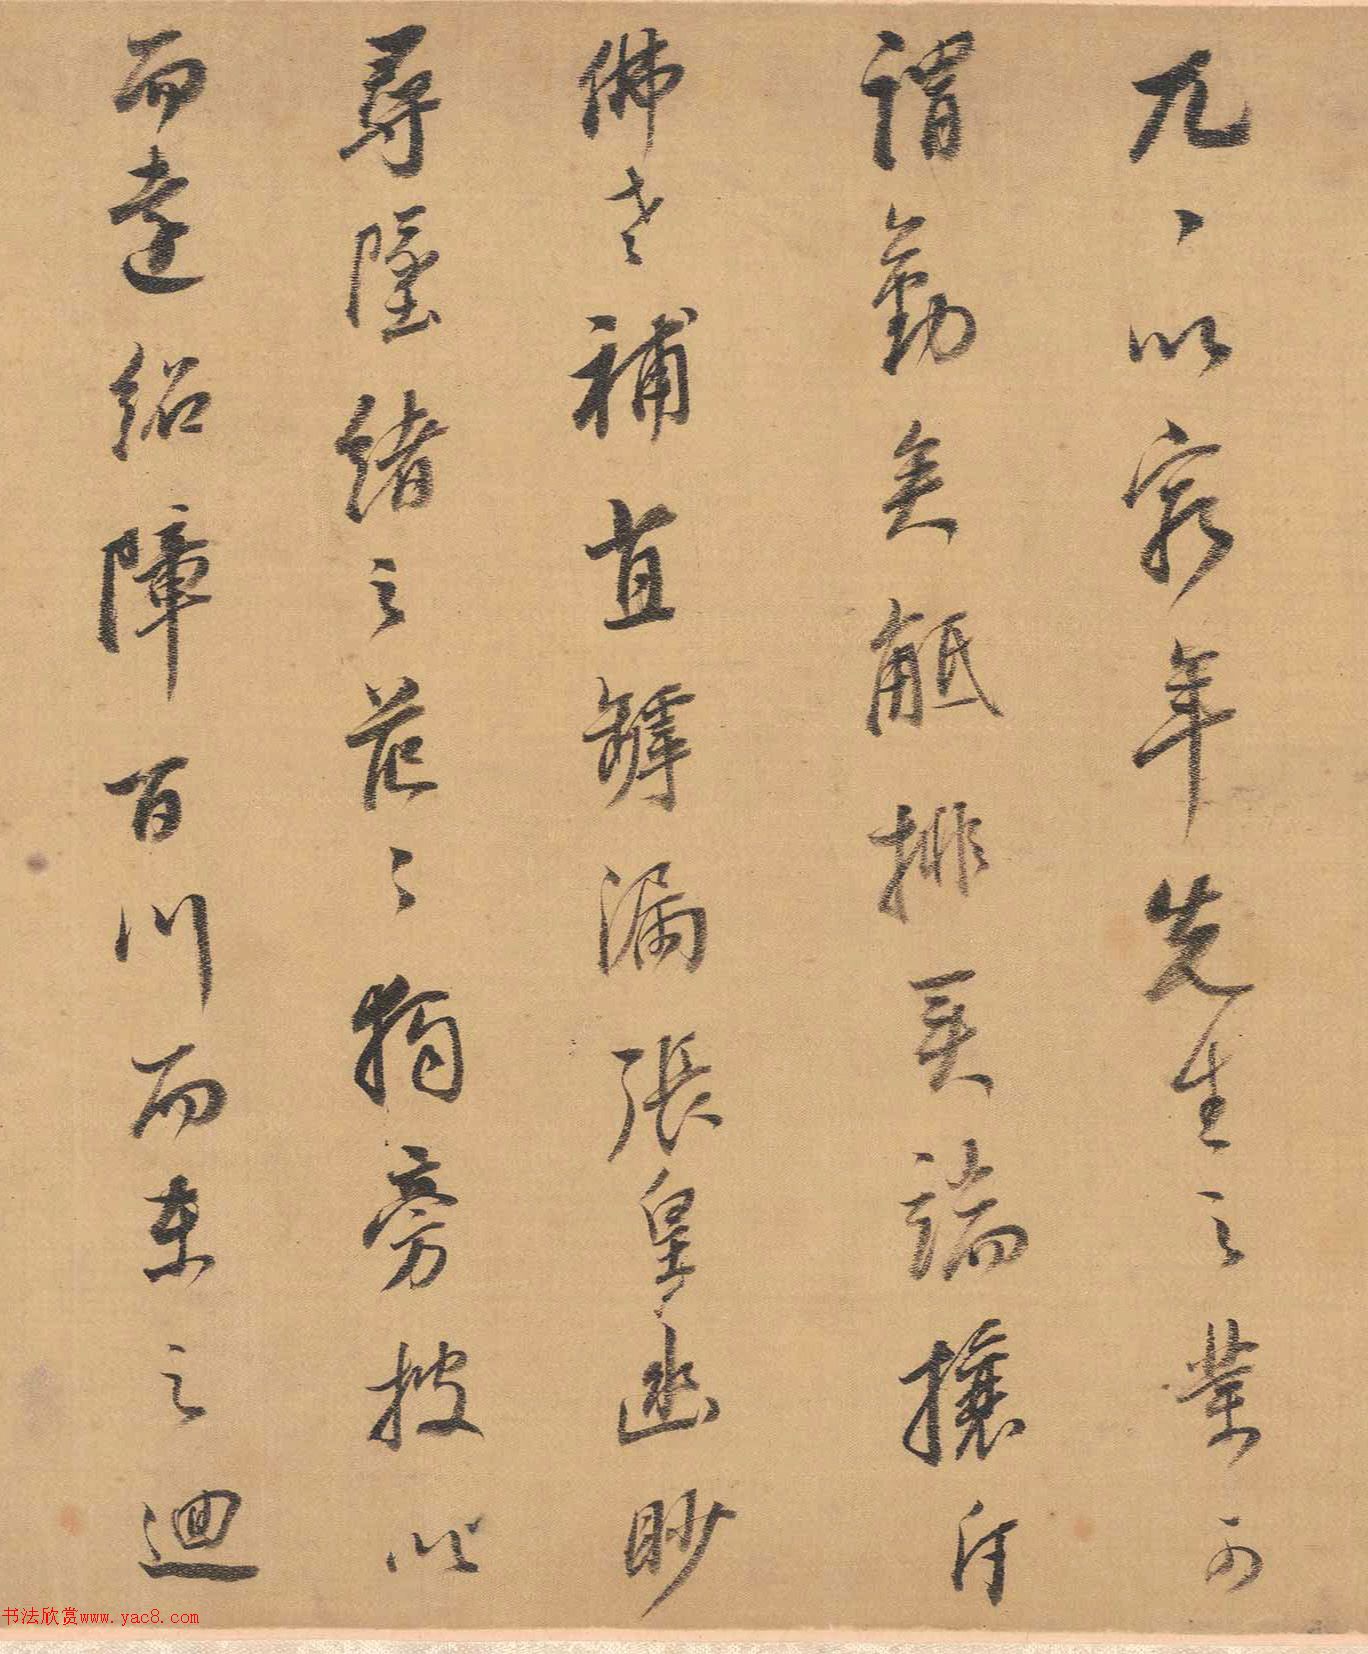 兀々以窮年先生之業可
謂勤矣觝排異端攘斥
佛老補苴罅漏張皇幽眇
尋墜緒之茫々獨旁搜以
而遠紹障百川而東之迴
书法欣赏www.yac8.com